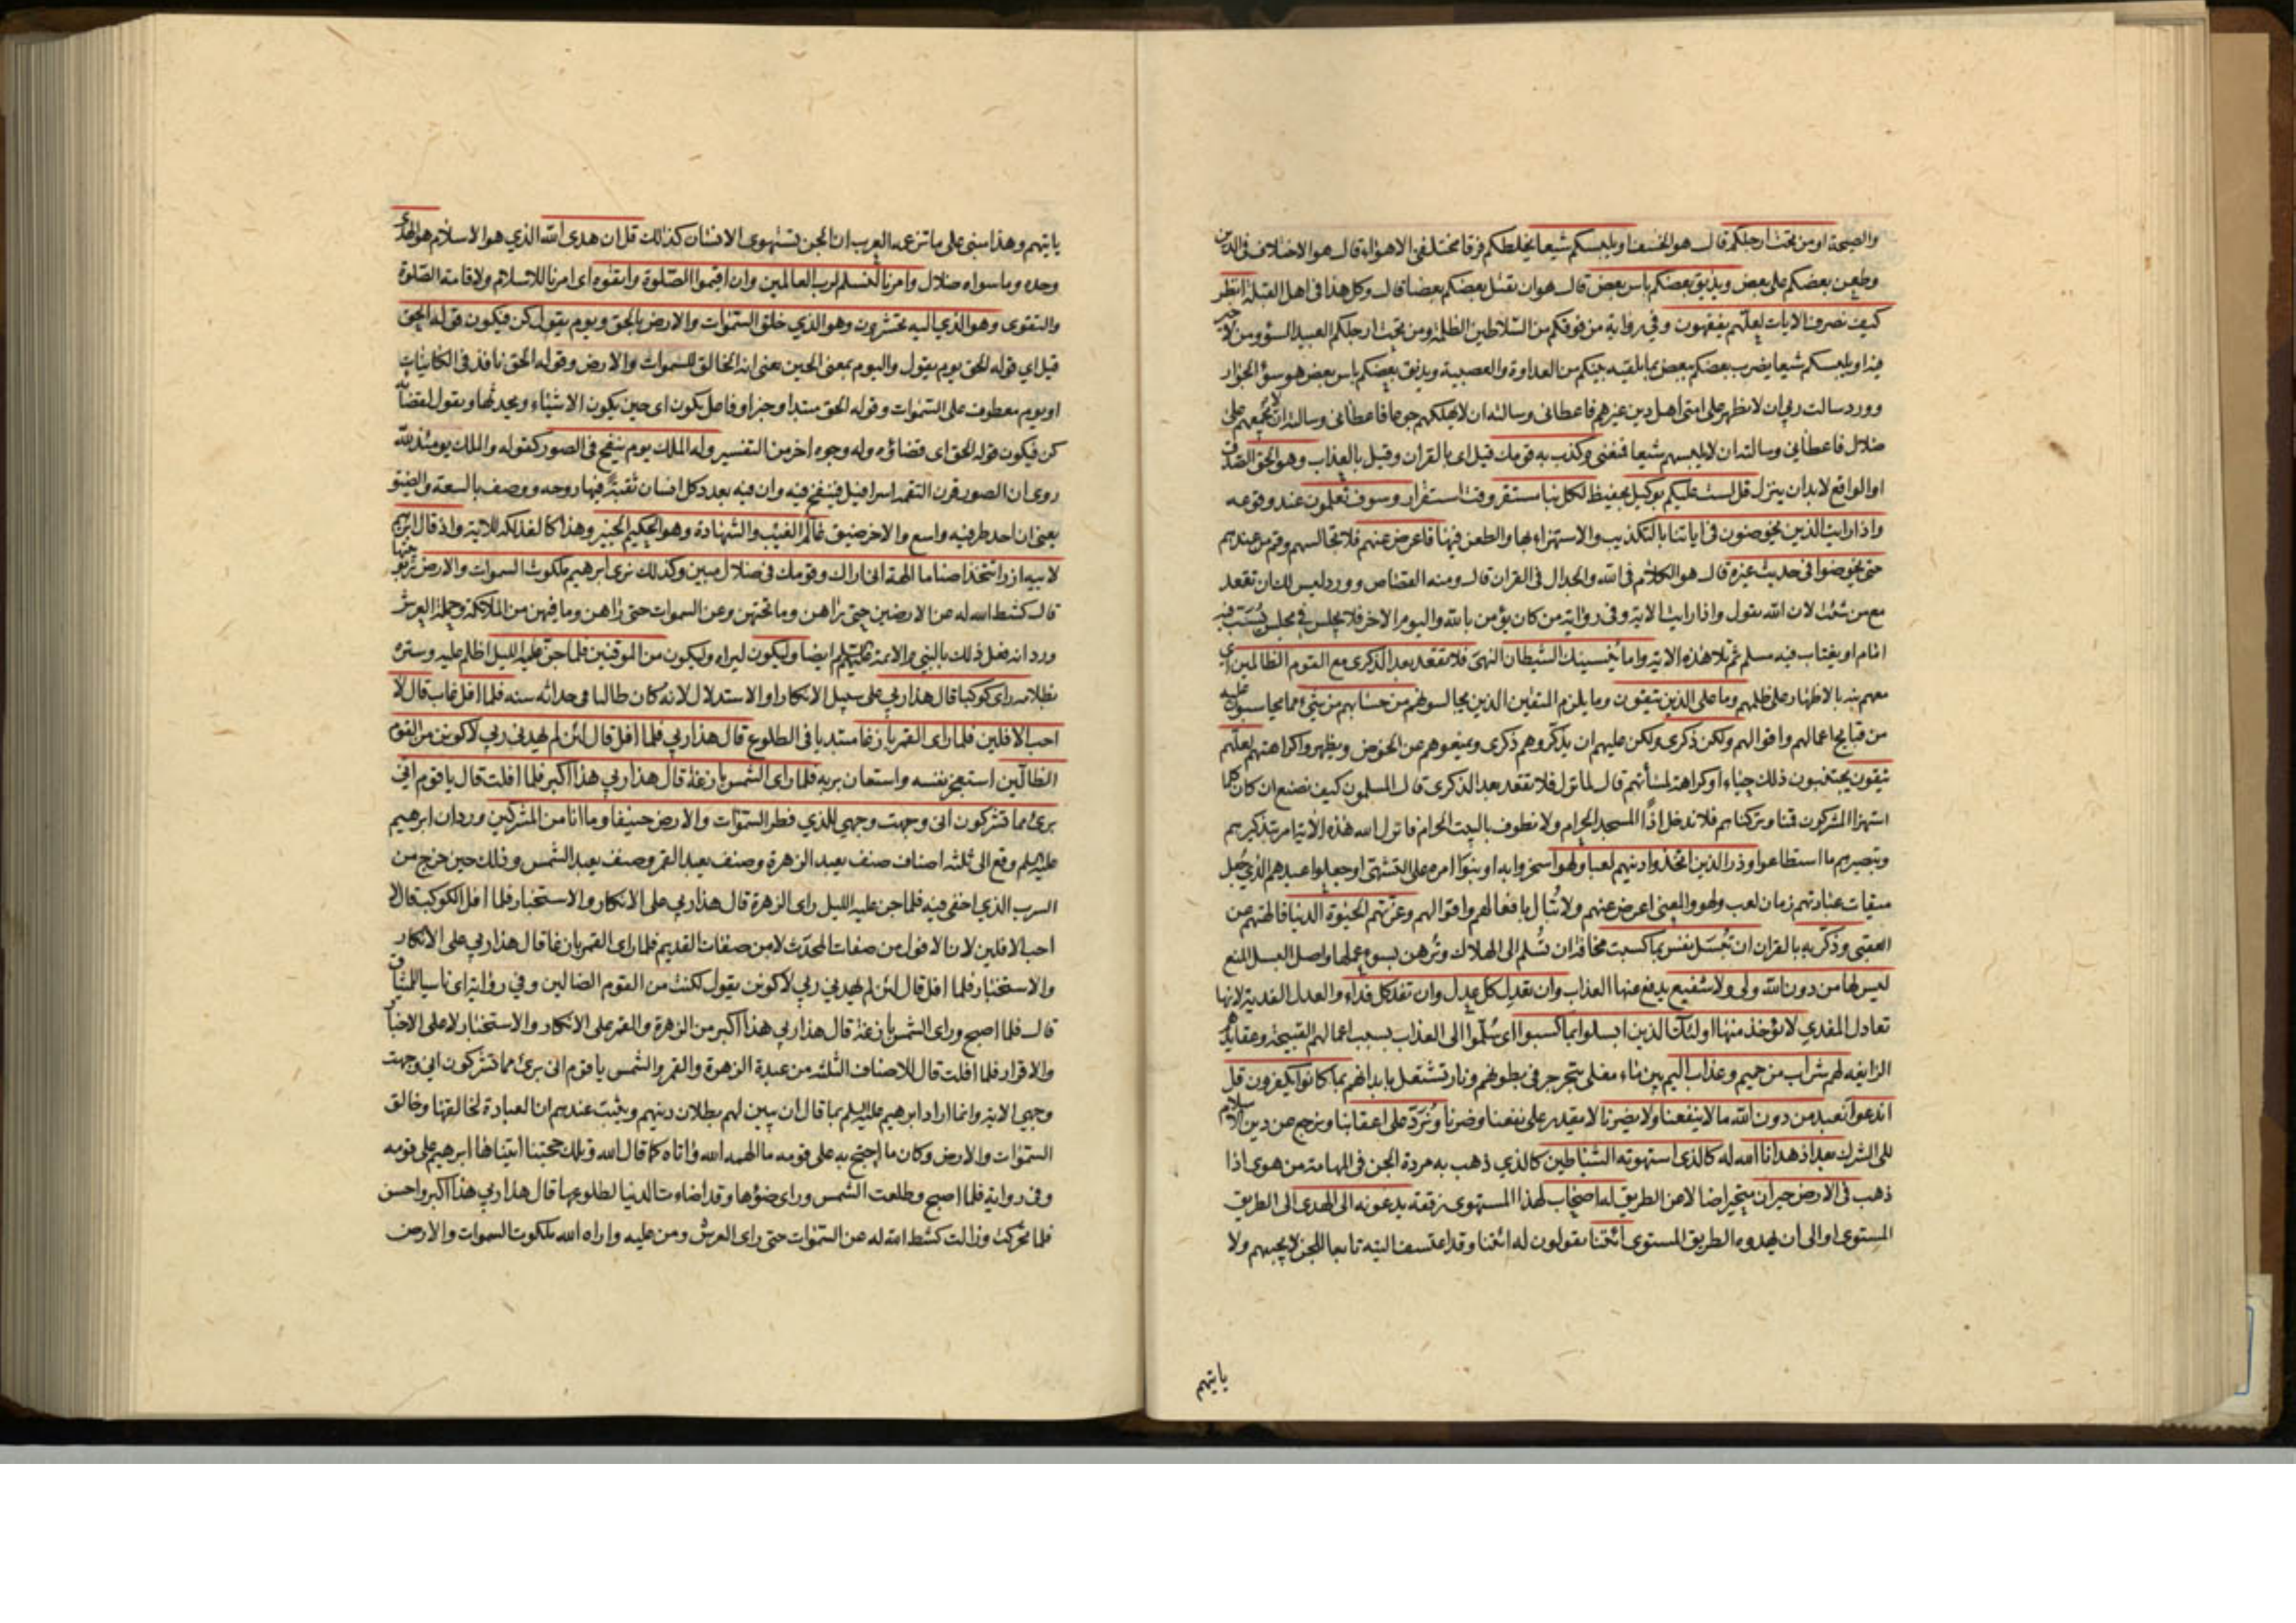 والصيحة او من تحت ارجلكم قال هو الخسف او يلبسكم شيعا يخلطكم فرقا مختلفي الاهواء قال هو الاختلاف في الدين
وطعن بعضكم على بعض ويذيق بعضكم باس بعض قال هو ان يقتل بعضكم بعضا قال وكل هذا في اهل القبلة انظر
كيف نصرف الايات لعلهم يفقهون وفي رواية من فوقكم من السلاطين الظلمة ومن تحت ارجلكم العبيد السوء ومن لا خير
فيه او يلبسكم شيعا يضرب بعضكم ببعض بما يلقيه بينكم من العداوة والعصبية ويذيق بعضكم باس بعض هو سوء الجوار
وورد سالت ربي ان لا يظهر على امتي اهل دين غيرهم فاعطاني وسالته ان لا يهلكهم جوعا فاعطاني وسالته ان لا يجمعهم على
ضلال فاعطاني وسالته ان لا يلبسهم شيعا فمنعني وكذب به قومك قيل اي بالقران وقيل بالعذاب وهو الحق الصدق
او الواقع لا بد ان ينزل قل لست عليكم بوكيل بحفيظ لكل نبا مستقر وقت استقرار وسوف تعلمون عند وقوعه
واذا رايت الذين يخوضون في اياتنا بالتكذيب والاستهزاء بها والطعن فيها فاعرض عنهم فلا تجالسهم وقم من عندهم
حتى يخوضوا في حديث غيره قال هو الكلام في الله والجدال في القران قال ومنه القصاص وورد ليس لك ان تقعد
مع من شئت لان الله يقول واذا رايت الاية وفي رواية من كان يؤمن بالله واليوم الاخر فلا يجلس في مجلس يسب فيه
امام او يغتاب فيه مسلم ثم تلا هذه الاية واما ينسينك الشيطان النهي فلا تقعد بعد الذكرى مع القوم الظالمين اي
معهم بالاظهار على ظلمهم وما على الذين يتقون وما يلزم المتقين الذين يجالسونهم من حسابهم من شيء مما يحاسبون عليه
من قبايح اعمالهم واقوالهم ولكن ذكرى ولكن عليهم ان يذكروهم ذكرى ويمنعوهم من الخوض ويظهروا كراهتهم لعلهم
يتقون يجتنبون ذلك حياء او كراهة لمسأتهم قال لما نزل فلا تقعد بعد الذكرى قال المسلمون كيف نصنع ان كان كلما
استهزا المشركون قمنا وتركناهم فلا ندخل اذا المسجد الحرام ولا نطوف بالبيت الحرام فانزل الله هذه الاية امر بتذكيرهم
وتبصيرهم ما استطاعوا وذر الذين اتخذوا دينهم لعبا ولهوا سخروا به او بنوا امره على التشهي او جعلوا عيدهم الذي جعل
ميقات عبادتهم زمان لعب ولهو والمعنى اعرض عنهم ولا تبال بافعالهم واقوالهم وغرتهم الحيوة الدنيا فالهتهم عن
العقبى وذكر به بالقران ان تبسل نفس بما كسبت مخافة ان تسلم الى الهلاك وترهن بسوء عملها واصل البسل المنع
ليس لها من دون الله ولي ولا شفيع يدفع عنها العذاب وان تعدل كل عدل وان تفد كل فداء والعدل الفدية لانها
تعادل المفدي لا يؤخذ منها اولئك الذين ابسلوا بما كسبوا اي سلموا الى العذاب بسبب اعمالهم القبيحة وعقايدهم
الزايغة لهم شراب من حميم وعذاب اليم بين ماء مغلي يتجرجر في بطونهم ونار تشتعل بابدانهم بما كانوا يكفرون قل
اندعوا نعبد من دون الله ما لا ينفعنا ولا يضرنا لا يقدر على نفعنا وضرنا ونرد على اعقابنا ونرجع عن دين الاسلام
الى الشرك بعد اذ هدانا الله له كالذي استهوته الشياطين كالذي ذهب به مردة الجن في المهامة من هوى اذا
ذهب في الارض حيران متحيرا ضالا عن الطريق له اصحاب لهذا المستهوى رفقة يدعونه الى الهدى الى الطريق
المستوى او الى ان يهدوه الطريق المستوى ائتنا يقولون له ائتنا وقد اعتسف التيه تابعا للجن لا يجيبهم ولا
ياتيهم
ياتيهم وهذا مبني على ما تزعمه العرب ان الجن تستهوي الانسان كذلك قل ان هدى الله الذي هو الاسلام هو الهدى
وحده وما سواه ضلال وامرنا لنسلم لرب العالمين وان اقيموا الصلوة واتقوه اي امرنا للاسلام ولاقامة الصلوة
والتقوى وهو الذي اليه تحشرون وهو الذي خلق السموات والارض بالحق ويوم يقول كن فيكون قوله الحق
قيل اي قوله الحق يوم يقول واليوم بمعنى الحين يعني انه الخالق للسموات والارض وقوله الحق نافذ في الكاينات
او يوم معطوف على السموات وقوله الحق مبتدا وخبر او فاعل يكون اي حين يكون الاشياء ويحدثها ويقول لقضائه
كن فيكون قوله الحق اي قضاؤه وله وجوه اخر من التفسير وله الملك يوم ينفخ في الصور كقوله والملك يومئذ لله
روى ان الصور قرن التقمه اسرافيل فينفخ فيه وان فيه بعدد كل انسان ثقبة فيها روحه ووصف بالسعة والضيق
يعني ان احد طرفيه واسع والاخر ضيق عالم الغيب والشهادة وهو الحكيم الخبير وهذا كالفذلكة للاية واذ قال ابرهيم
لابيه ازر اتتخذ اصناما الهة اني اراك وقومك في ضلال مبين وكذلك نري ابرهيم ملكوت السموات والارض
قال كشط الله له عن الارضين حتى راهن وما تحتهن وعن السموات حتى راهن وما فيهن من الملائكة وحملة العرش
ورد انه فعل ذلك بالنبي والائمة عليهم السلم ايضا وليكون ليراه وليكون من الموقنين فلما جن عليه الليل اظلم عليه وستره
بظلامه راى كوكبا قال هذا ربي على سبيل الانكار او الاستدلال لانه كان طالبا في حداثة سنه فلما افل غاب قال لا
احب الافلين فلما راى القمر بازغا مبتديا في الطلوع قال هذا ربي فلما افل قال لئن لم يهدني ربي لاكونن من القوم
الظالين استعجز نفسه واستعان بربه فلما راى الشمس بازغة قال هذا ربي هذا اكبر فلما افلت قال يا قوم اني
برئ مما تشركون اني وجهت وجهي للذي فطر السموات والارض حنيفا وما انا من المشركين ورد ان ابرهيم
عليه السلم وقع الى ثلثه اصناف صنف يعبد الزهرة وصنف يعبد القمر وصنف يعبد الشمس وذلك حين خرج من
السرب الذي اخفي فيه فلما جن عليه الليل راى الزهرة قال هذا ربي على الانكار والاستخبار فلما افل الكوكب قال لا
احب الافلين لان الافول من صفات المحدث لا من صفات القديم فلما راى القمر بازغا قال هذا ربي على الانكار
والاستخبار فلما افل قال لئن لم يهدني ربي لاكونن يقول لكنت من القوم الضالين وفي رواية اي ناسيا للميثاق
قال فلما اصبح وراى الشمس بازغة قال هذا ربي هذا اكبر من الزهرة والقمر على الانكار والاستخبار لا على الاخبار
والاقرار فلما افلت قال للاصناف الثلثة من عبدة الزهرة والقمر والشمس يا قوم اني برئ مما تشركون اني وجهت
وجهي الاية وانما اراد ابرهيم عليه السلم بما قال ان يبين لهم بطلان دينهم ويثبت عندهم ان العبادة لخالقها وخالق
السموات والارض وكان ما احتج به على قومه ما الهمه الله واتاه كما قال الله وتلك حجتنا اتيناها ابرهيم على قومه
وفي رواية فلما اصبح وطلعت الشمس وراى ضؤها وقد اضاءت الدنيا لطلوعها قال هذا ربي هذا اكبر واحسن
فلما تحركت وزالت كشط الله له عن السموات حتى راى العرش ومن عليه واراه الله ملكوت السموات والارض